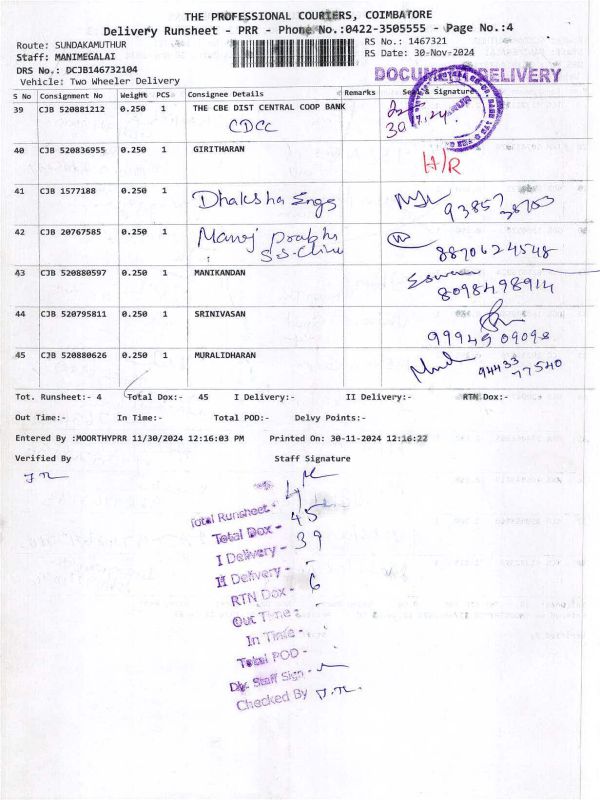 THE PROFESSIONAL COURIERS, COIMBATORE
Delivery Runsheet - PRR - Phone No.:0422-3505555 - Page No.:4
Route: SUNDAKAMUTHUR
RS No.: 1467321
Staff: MANIMEGALAI
RS Date: 30-Nov-2024
DRS No.: DCJB146732104
DOCUMENT DELIVERY
Vehicle: Two Wheeler Delivery
S No Consignment No Weight PCS Consignee Details Remarks Seal & Signature
39 CJB 520881212 0.250 1 THE CBE DIST CENTRAL COOP BANK
CDCC
40 CJB 520836955 0.250 1 GIRITHARAN H/R
41 CJB 1577188 0.250 1 Dhaksha Engs
42 CJB 20767585 0.250 1 Manoj Prabhu
8870624548
43 CJB 520880597 0.250 1 MANIKANDAN Eswari
8098498914
44 CJB 520795811 0.250 1 SRINIVASAN
45 CJB 520880626 0.250 1 MURALIDHARAN 94433
77540
Tot. Runsheet:- 4 Total Dox:- 45 I Delivery:- II Delivery:- RTN Dox:-
Out Time:- In Time:- Total POD:- Delvy Points:-
Entered By :MOORTHYPRR 11/30/2024 12:16:03 PM Printed On: 30-11-2024 12:16:22
Verified By Staff Signature
Total Runsheet - 4
Total Dox - 45
I Delivery - 39
II Delivery - -
RTN Dox - 6
Out Time -
In Time -
Total POD -
Dly. Staff Sign -
Checked By